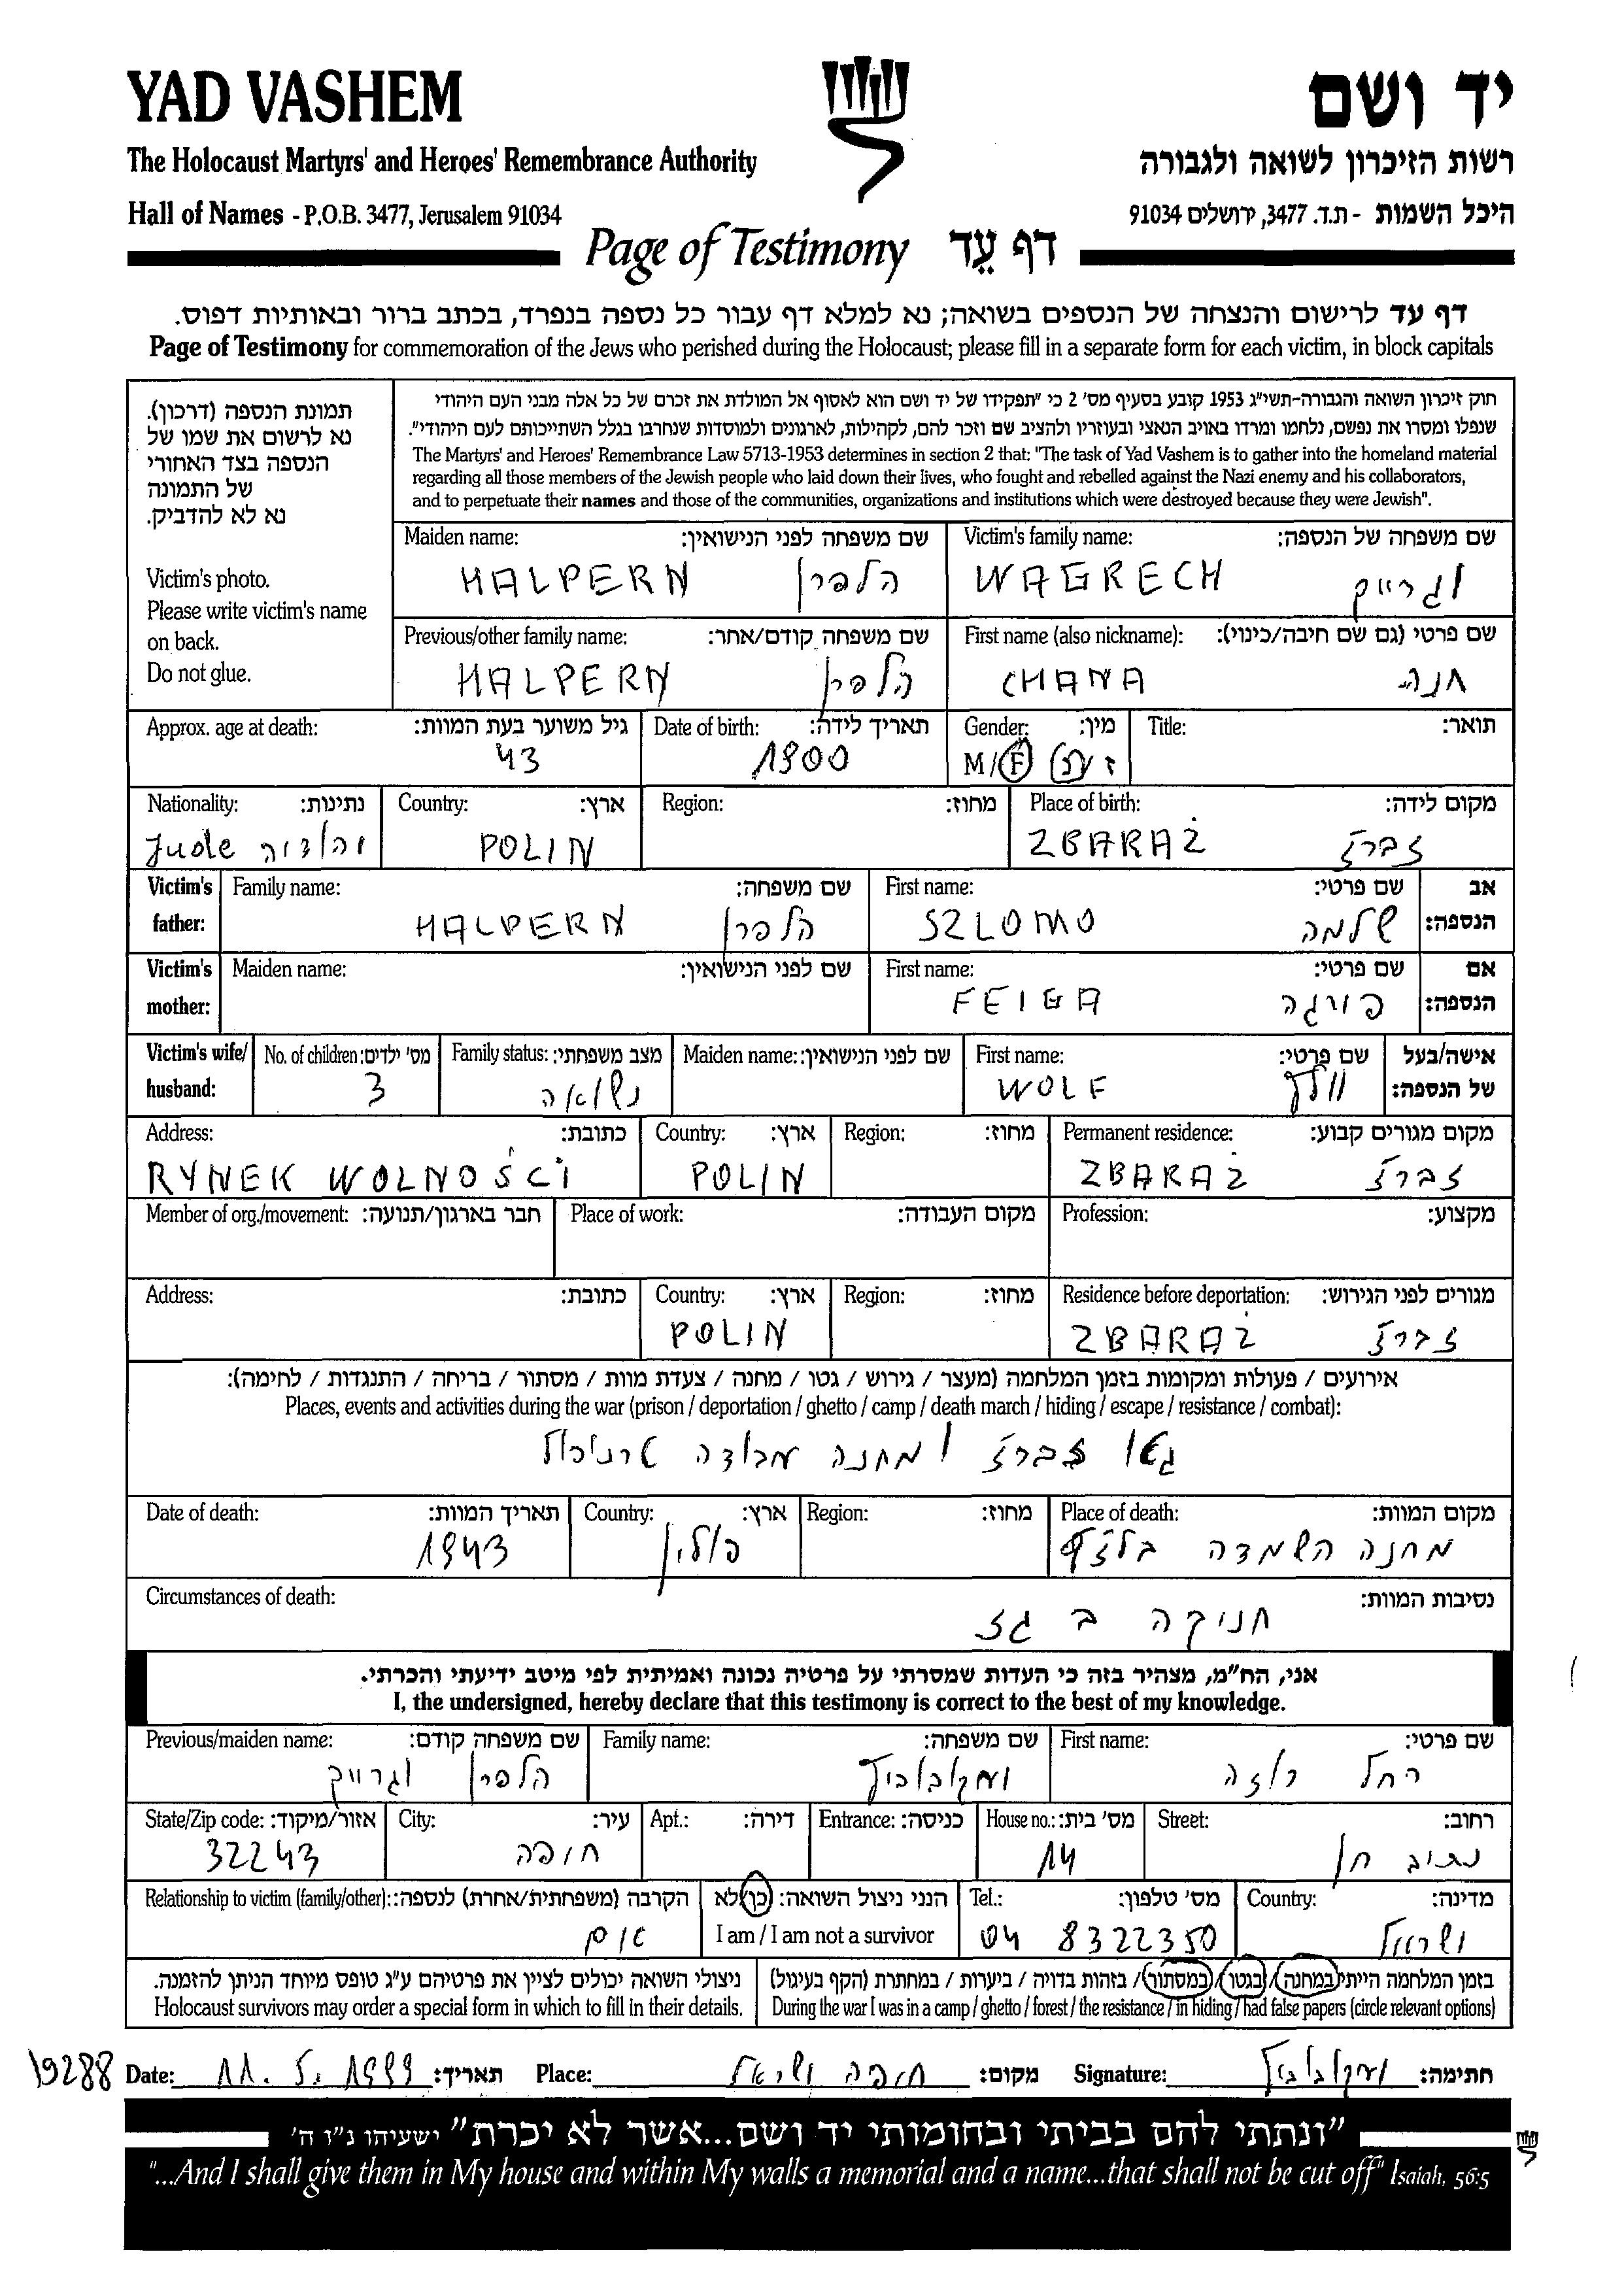 YAD VASHEM
יד ושם
The Holocaust Martyrs' and Heroes' Remembrance Authority
רשות הזיכרון לשואה ולגבורה
Hall of Names - P.O.B. 3477, Jerusalem 91034
היכל השמות - ת.ד. 3477, ירושלים 91034
Page of Testimony דף עֵד
דף עד לרישום והנצחה של הנספים בשואה; נא למלא דף עבור כל נספה בנפרד, בכתב ברור ובאותיות דפוס.
Page of Testimony for commemoration of the Jews who perished during the Holocaust; please fill in a separate form for each victim, in block capitals
תמונת הנספה (דרכון).
נא לרשום את שמו של
הנספה בצד האחורי
של התמונה
נא לא להדביק.
Victim's photo.
Please write victim's name
on back.
Do not glue.
חוק זיכרון השואה והגבורה-תשי"ג 1953 קובע בסעיף מס' 2 כי "תפקידו של יד ושם הוא לאסוף אל המולדת את זכרם של כל אלה מבני העם היהודי
שנפלו ומסרו את נפשם, נלחמו ומרדו באויב הנאצי ובעוזריו ולהציב שם וזכר להם, לקהילות, לארגונים ולמוסדות שנחרבו בגלל השתייכותם לעם היהודי".
The Martyrs' and Heroes' Remembrance Law 5713-1953 determines in section 2 that: "The task of Yad Vashem is to gather into the homeland material
regarding all those members of the Jewish people who laid down their lives, who fought and rebelled against the Nazi enemy and his collaborators,
and to perpetuate their names and those of the communities, organizations and institutions which were destroyed because they were Jewish".
Maiden name: שם משפחה לפני הנישואין: Victim's family name: שם משפחה של הנספה:
HALPERN הלפרן WAGRECH וגרייק
Previous/other family name: שם משפחה קודם/אחר: First name (also nickname): שם פרטי (גם שם חיבה/כינוי):
HALPERN הלפרן CHANA חנה
Approx. age at death: גיל משוער בעת המוות: Date of birth: תאריך לידה: Gender: מין: Title: תואר:
43 1900 M/F ז/נ
Nationality: נתינות: Country: ארץ: Region: מחוז: Place of birth: מקום לידה:
Jude יהודיה POLIN ZBARAŻ זברז
Victim's father: Family name: שם משפחה: First name: שם פרטי: אב הנספה:
HALPERN הלפרן SZLOMO שלמה
Victim's mother: Maiden name: שם לפני הנישואין: First name: שם פרטי: אם הנספה:
FEIGA פייגה
Victim's wife/ husband: No. of children: מס' ילדים: Family status: מצב משפחתי: Maiden name: שם לפני הנישואין: First name: שם פרטי: אישה/בעל של הנספה:
3 נשואה WOLF וולף
Address: כתובת: Country: ארץ: Region: מחוז: Permanent residence: מקום מגורים קבוע:
RYNEK WOLNOŚCI POLIN ZBARAŻ זברז
Member of org./movement: חבר בארגון/תנועה: Place of work: מקום העבודה: Profession: מקצוע:
Address: כתובת: Country: ארץ: Region: מחוז: Residence before deportation: מגורים לפני הגירוש:
POLIN ZBARAŻ זברז
אירועים / פעולות ומקומות בזמן המלחמה (מעצר / גירוש / גטו / מחנה / צעדת מוות / מסתור / בריחה / התנגדות / לחימה):
Places, events and activities during the war (prison / deportation / ghetto / camp / death march / hiding / escape / resistance / combat):
גטו זברז ומחנה עבודה טרניפול
Date of death: תאריך המוות: Country: ארץ: Region: מחוז: Place of death: מקום המוות:
1943 פולין מחנה השמדה בלזץ
Circumstances of death: נסיבות המוות:
חניקה ב גז
אני, הח"מ, מצהיר בזה כי העדות שמסרתי על פרטיה נכונה ואמיתית לפי מיטב ידיעתי והכרתי.
I, the undersigned, hereby declare that this testimony is correct to the best of my knowledge.
Previous/maiden name: שם משפחה קודם: Family name: שם משפחה: First name: שם פרטי:
הלפרן וגרייק יעקובוביץ רחל רוזה
State/Zip code: אזור/מיקוד: City: עיר: Apt.: דירה: Entrance: כניסה: House no.: מס' בית: Street: רחוב:
32243 חיפה 14 נתיב חן
Relationship to victim (family/other): הקרבה (משפחתית/אחרת) לנספה: הנני ניצול השואה: כן/לא Tel.: מס' טלפון: Country: מדינה:
I am / I am not a survivor 04 8322350 ישראל
ניצולי השואה יכולים לציין את פרטיהם ע"ג טופס מיוחד הניתן להזמנה. בזמן המלחמה הייתי במחנה/בגטו/במסתור/ בזהות בדויה / ביערות / במחתרת (הקף בעיגול)
Holocaust survivors may order a special form in which to fill in their details. During the war I was in a camp / ghetto / forest / the resistance / in hiding / had false papers (circle relevant options)
19288 Date: 11.5.1999 תאריך: Place: חיפה ישראל מקום: Signature: יעקובוביץ חתימה:
"ונתתי להם בביתי ובחומותי יד ושם...אשר לא יכרת" ישעיהו נ"ו ה'
"...And I shall give them in My house and within My walls a memorial and a name...that shall not be cut off" Isaiah, 56:5